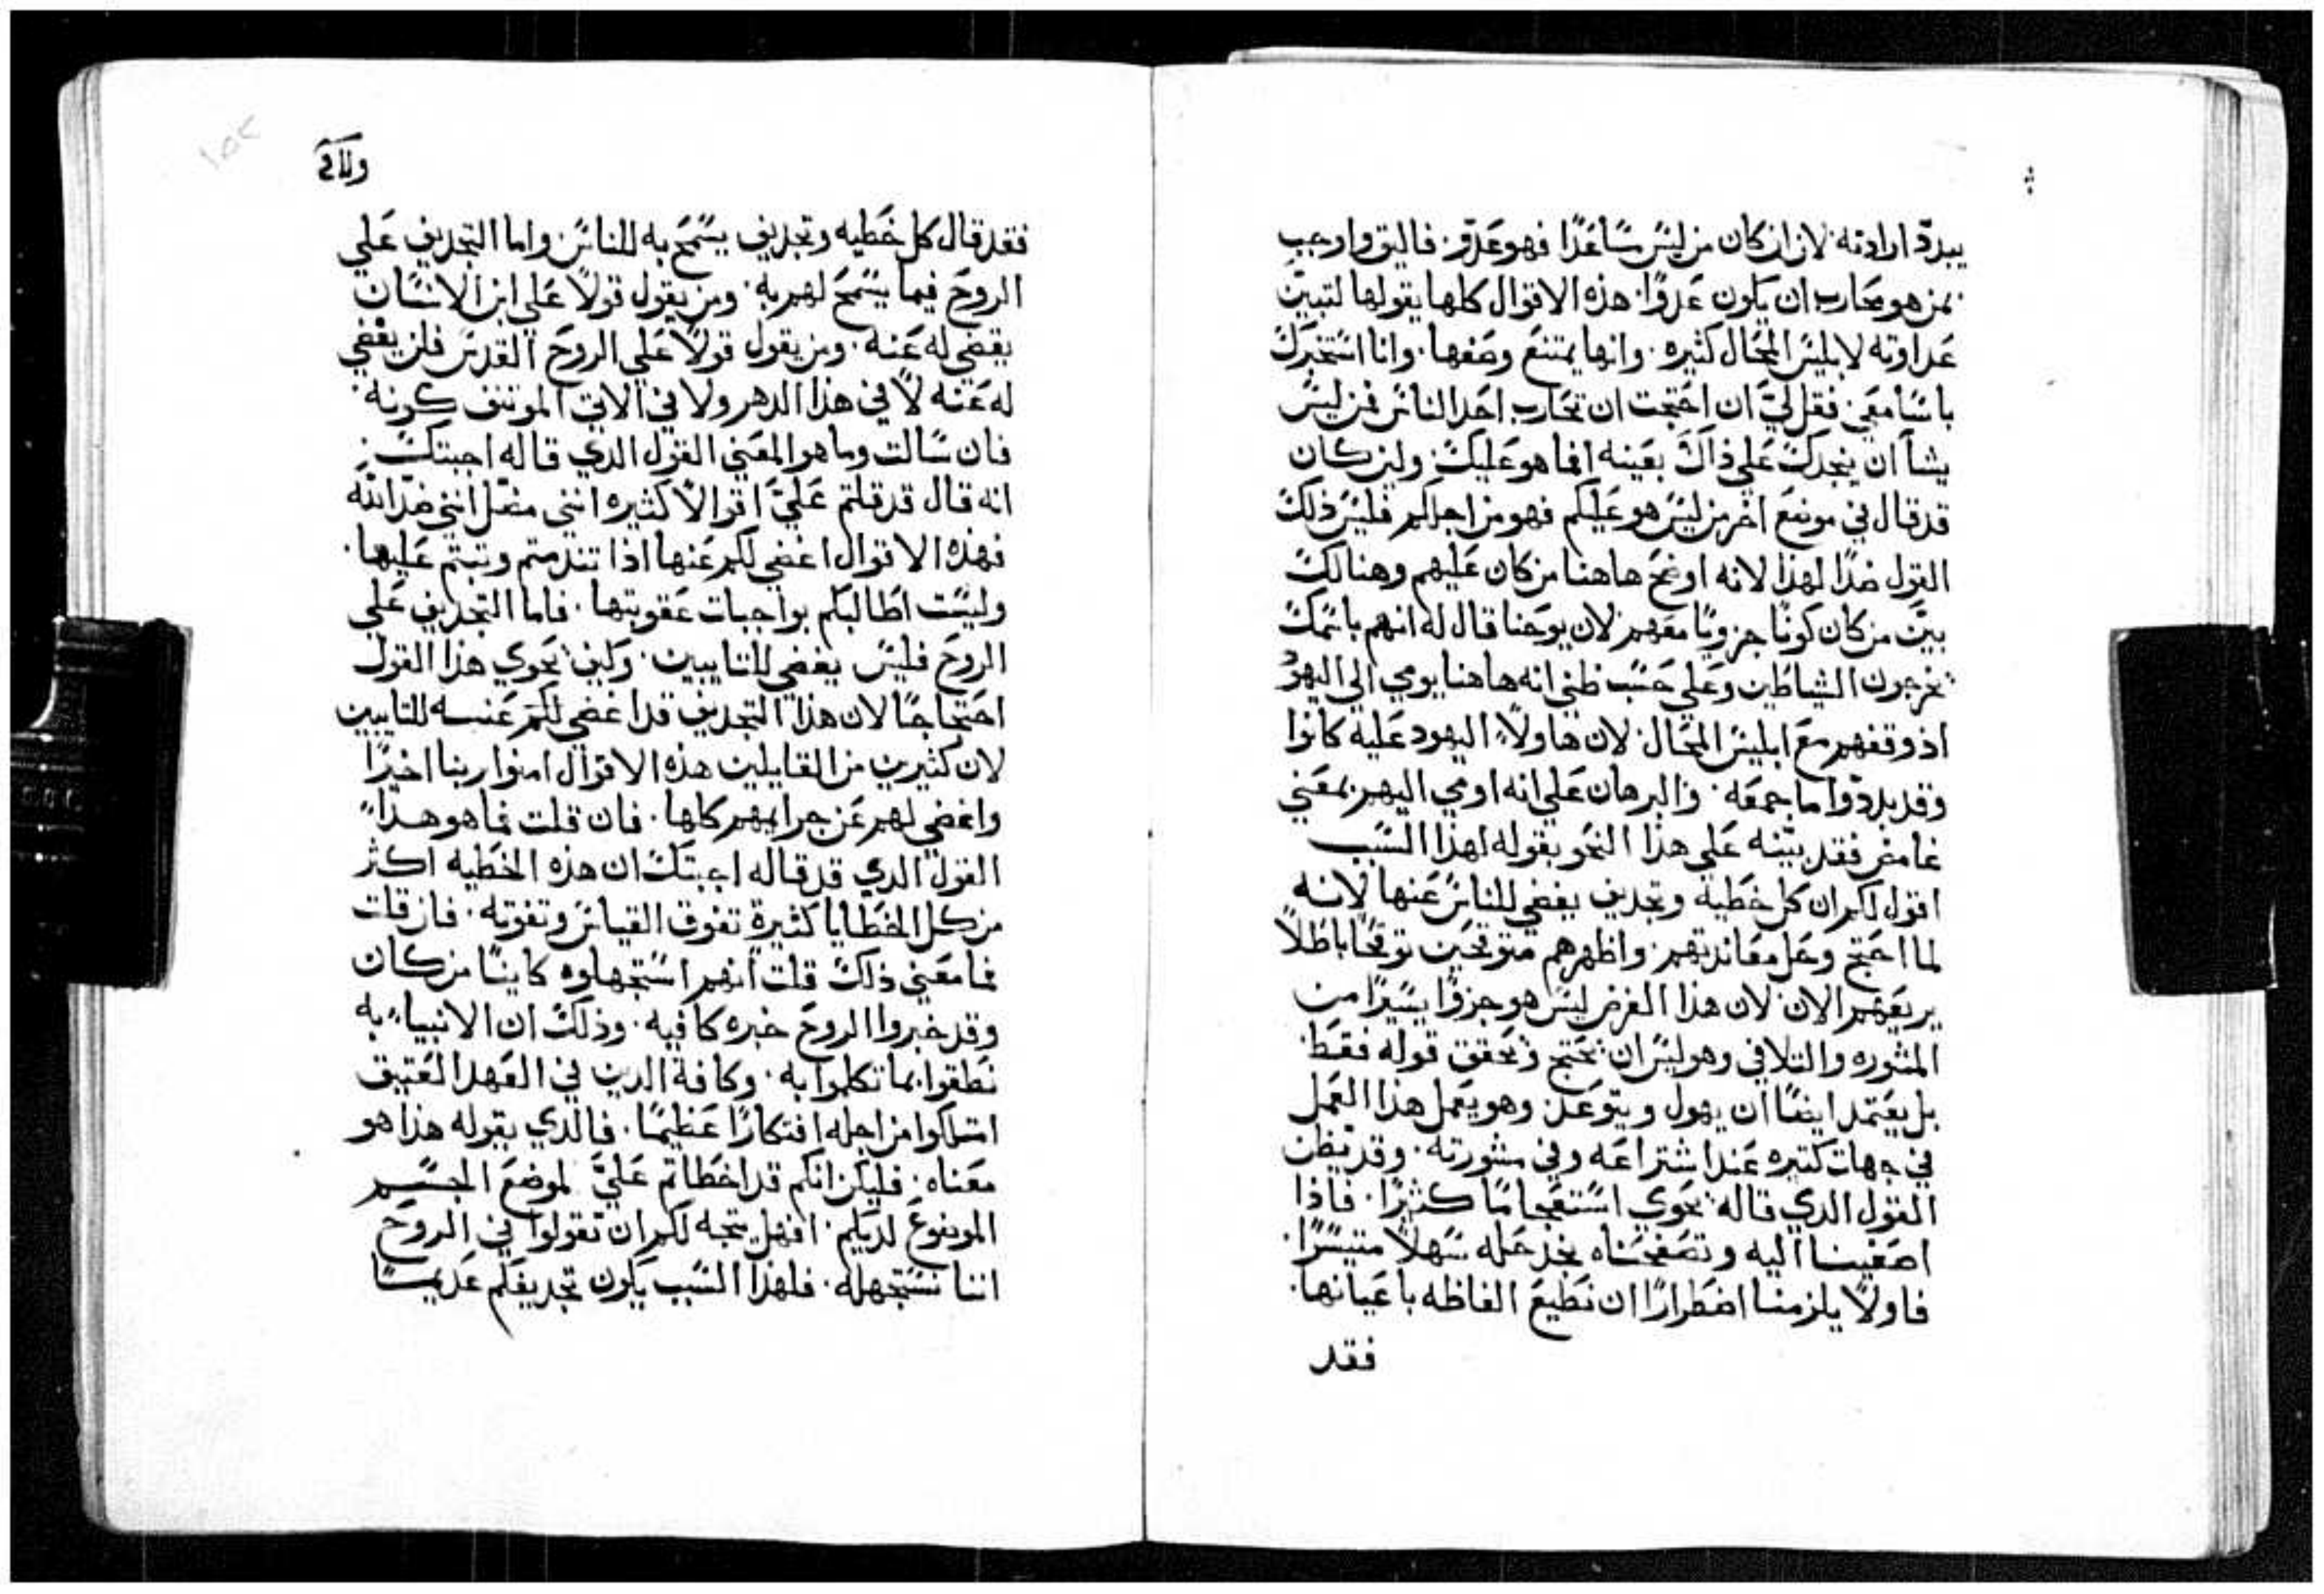 يبدد ارادته لان ان كان من ليس ساعدا فهو عدو فاليق واوجب
بمن هو محارب ان يكون عدوا هذه الاقوال كلها يقولها لتبين
عداوته لابليس المحال كثيره وانها يمتنع وصفها وانا استخبرك
يا سامعي فقل لي ان احتجت ان تحارب احد الناس فمن ليس
يشا ان ينجدك علي ذاك بعينه افما هو عليك ولين كان
قد قال في موضع اخر من ليس هو عليكم فهو من اجلكم فليس ذلك
القول ضدا لهذا لانه اوضح هاهنا من كان عليهم وهنالك
بين من كان كونا جزويا معهم لان يوحنا قال له انهم باسمك
يخرجون الشياطين وعلي حسب ظني انه هاهنا يومي الي اليهود
اذ وقفهم مع ابليس المحال لان هاولاء اليهود عليه كانوا
وقد بددوا ما جمعه والبرهان علي انه اومي اليهم بمعني
غامض فقد بينه علي هذا النحو بقوله لهذا السبب
اقول لكم ان كل خطيه وتجديف يغضي للناس عنها لانه
لما احتج وحل معاندتهم واظهرهم متوقحين توقحا باطلا
يريعهم الان لان هذا الغرض ليس هو جزوا يسيرا من
المشوره والتلافي وهو ليس ان يحتج ويحقق قوله فقط
بل يعتمد ايضا ان يهول ويتوعد وهو يعمل هذا العمل
في جهات كثيره عند اشتراعه وفي مشورته وقد يظن
القول الدي قاله يحوي استعجاما كثيرا فاذا
اصغينا اليه وتصفحناه نجد حله سهلا متيسرا
فاولا يلزمنا اضطرارا ان نطيع الفاظه باعيانها
فقد
فقد قال كل خطيه وتجديف يسمح به للناس واما التجديف علي
الروح فيما يسمح لهم به ومن يقول قولا علي ابن الانسان
يغضي له عنه ومن يقول قولا علي الروح القدس فلن يغضي
له عنه لا في هذا الدهر ولا في الاتي الموتنف كونه
فان سالت وما هو المعني القول الدي قاله اجبتك
انه قال قد قلتم علي اقوالا كثيره انني مضل انني ضد الله
فهذه الاقوال اغضي لكم عنها اذا تندمتم وتبتم عليها
وليست اطالبكم بواجبات عقوبتها فاما التجديف علي
الروح فليس يغضي للتايبين وكيف يحوي هذا القول
احتجاجا لان هذا التجديف قد اغضي لكم عنه للتايبين
لان كثيرين من القايلين هذه الاقوال امنوا بربنا اخيرا
واغضي لهم عن جرايمهم كلها فان قلت فما هو هذا
القول الدي قد قاله اجبتك ان هذه الخطيه اكثر
من كل الخطايا كثيرة تفوق القياس وتفوته فان قلت
فما معني ذلك قلت انهم استجهلوه كاينا من كان
وقد خبروا الروح خبره كافيه وذلك ان الانبياء به
نطقوا بما تكلموا به وكافة الدين في العهد العتيق
امتلكوا من اجله افتكارا عظيما فالدي يقوله هذا هو
معناه فليكن انكم قد اخطاتم علي لموضع الجسم
الموضوع لديكم افهل يتجه لكم ان تقولوا في الروح
اننا نستجهله فلهذا السبب يكون تجديفكم عديما